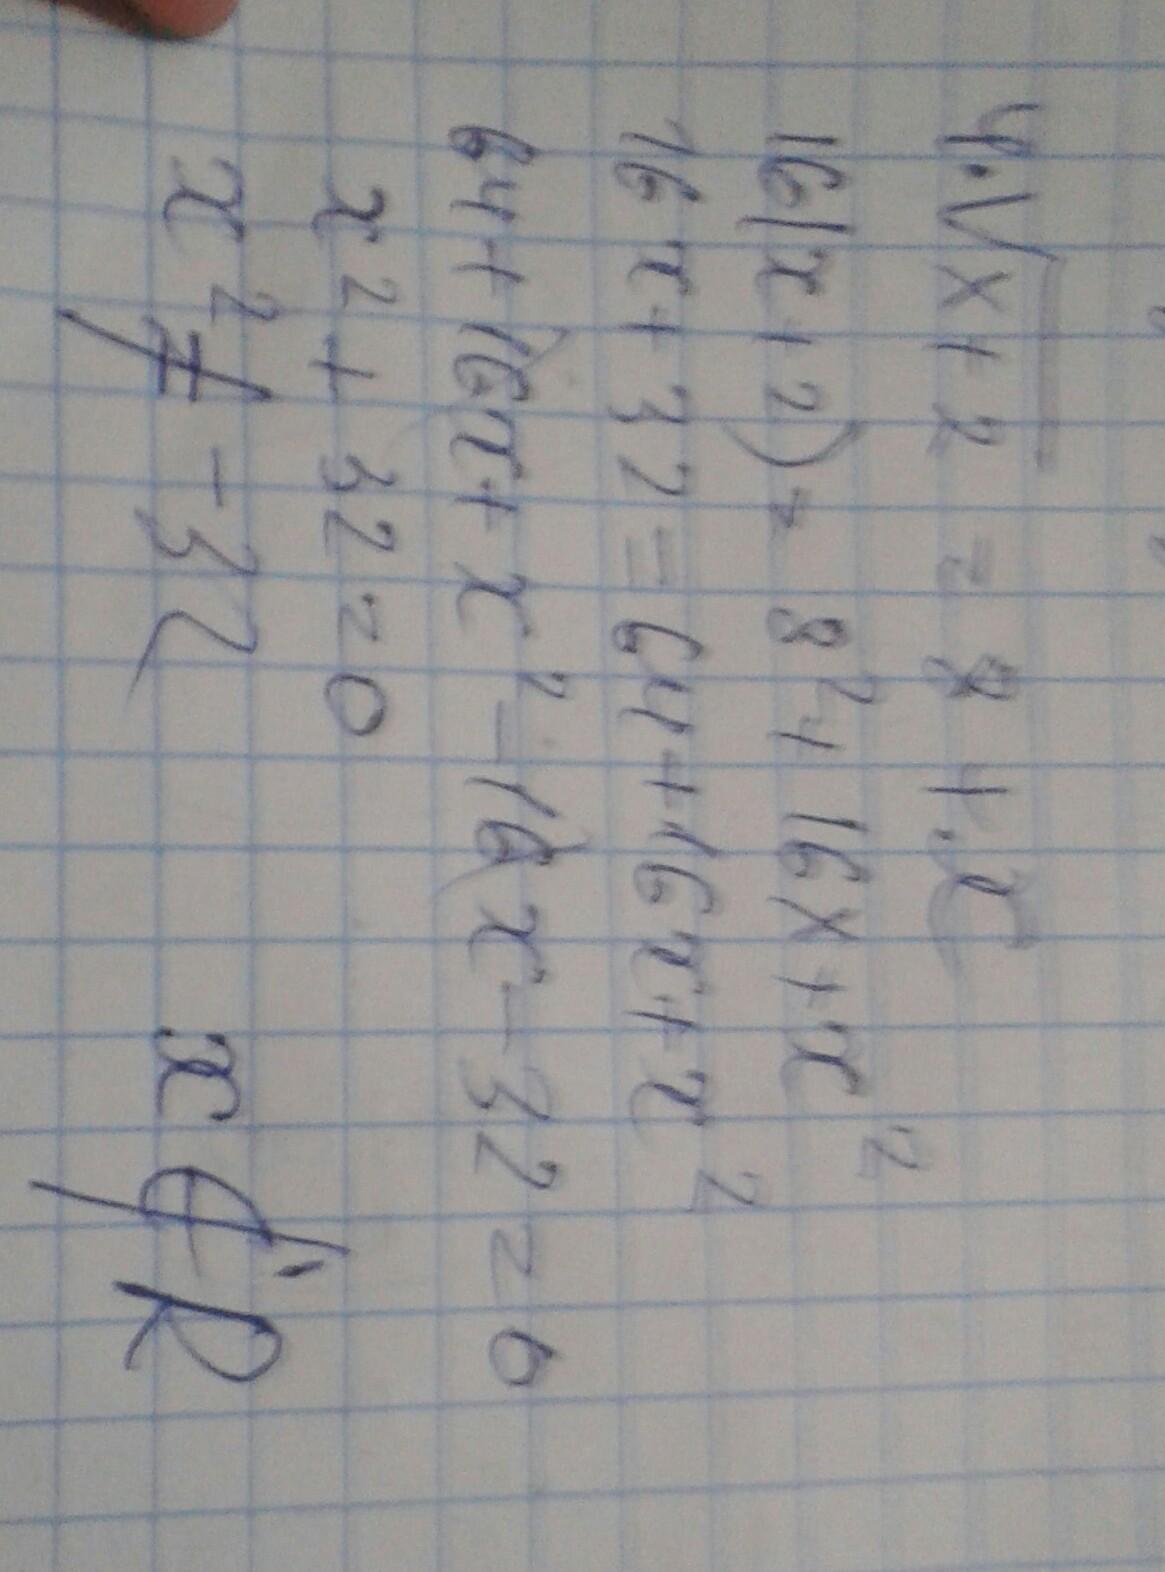 4·√x+2 = 8+x
16(x+2) = 8²+16x+x²
16x+32=64+16x+x²
64+16x+x²-16x-32=0
x²+32=0
x²≠-32 x∉R